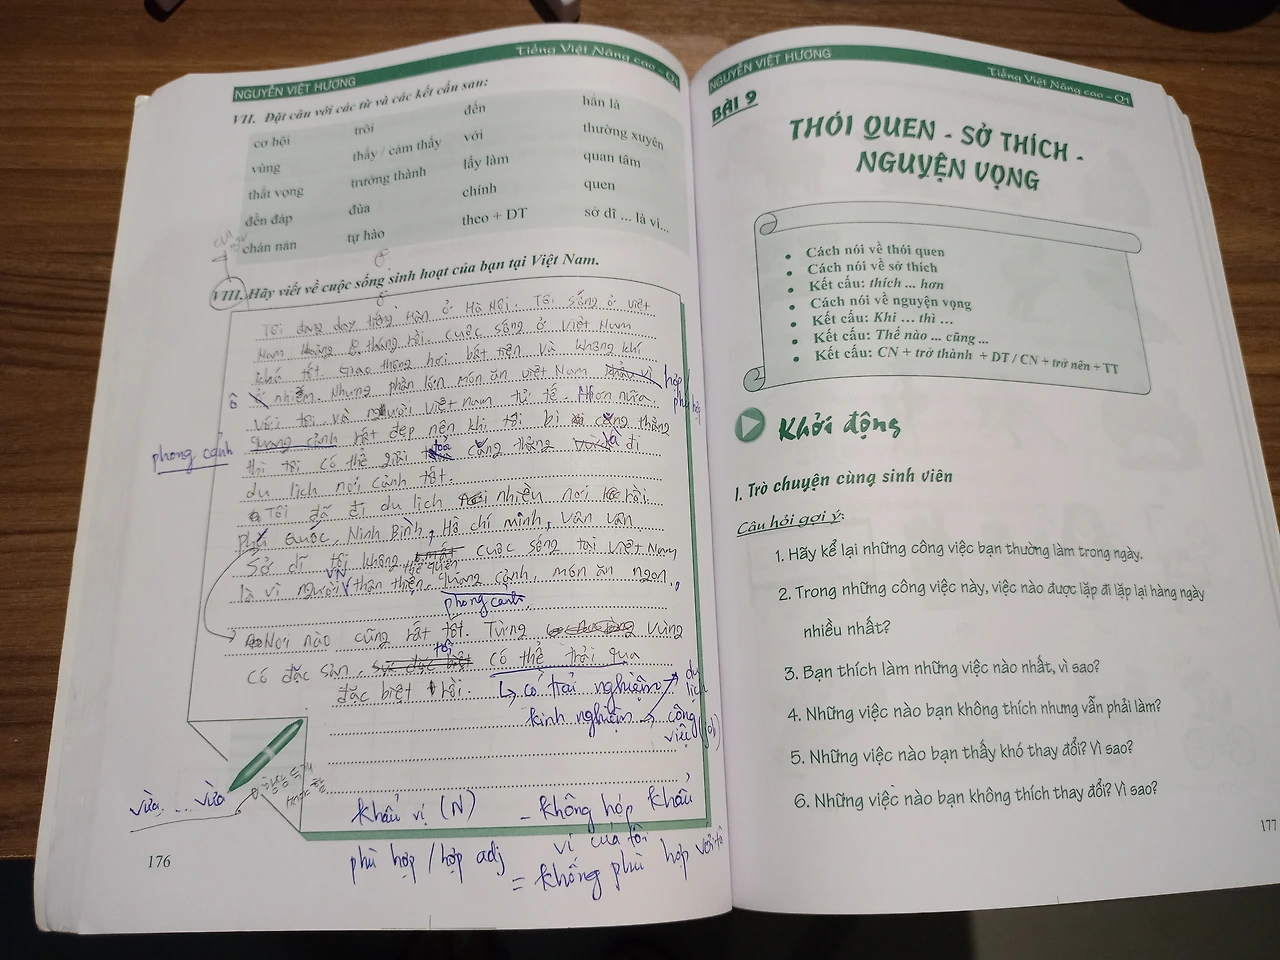 NGUYỄN VIỆT HƯƠNG
Tiếng Việt Nâng cao - Q1
VII. Đặt câu với các từ và các kết cấu sau:
cơ hội trôi đến hẳn là
vùng thấy / cảm thấy với thường xuyên
thất vọng trưởng thành lấy làm quan tâm
đền đáp đùa chính quen
chán nản tự hào theo + DT sở dĩ ... là vì...
VIII. Hãy viết về cuộc sống sinh hoạt của bạn tại Việt Nam.
Tôi đang dạy tiếng Hàn ở Hà Nội. Tôi sống ở Việt
Nam khoảng 8 tháng rồi. Cuộc sống ở Việt Nam
khá tốt. Giao thông hơi bất tiện và không khí
ô nhiễm. Nhưng phần lớn món ăn Việt Nam hợp
với tôi và người Việt Nam tử tế. Hơn nữa,
phong cảnh
rất đẹp nên khi tôi bị căng thẳng
thì tôi có thể giải toả căng thẳng và đi
du lịch nơi cảnh tốt.
Tôi đã đi du lịch nhiều nơi rồi.
Phú Quốc, Ninh Bình, Hồ chí minh, vân vân
Sở dĩ tôi không thể quên cuộc sống tại Việt Nam
là vì người VN thân thiện, quang cảnh, món ăn ngon.
phong cảnh
Nơi nào cũng rất tốt. Từng vùng
có đặc sản, tôi có thể trải qua
đặc biệt rồi.
↳ có trải nghiệm → du lịch
kinh nghiệm → công việc (job)
vừa ... vừa
khẩu vị (N)
- không hợp khẩu
vị của tôi
phù hợp / hợp adj
= không phù hợp với tôi
176
NGUYỄN VIỆT HƯƠNG
Tiếng Việt Nâng cao - Q1
BÀI 9
THÓI QUEN - SỞ THÍCH -
NGUYỆN VỌNG
• Cách nói về thói quen
• Cách nói về sở thích
• Kết cấu: thích ... hơn
• Cách nói về nguyện vọng
• Kết cấu: Khi ... thì ...
• Kết cấu: Thế nào ... cũng ...
• Kết cấu: CN + trở thành + DT / CN + trở nên + TT
Khởi động
I. Trò chuyện cùng sinh viên
Câu hỏi gợi ý:
1. Hãy kể lại những công việc bạn thường làm trong ngày.
2. Trong những công việc này, việc nào được lặp đi lặp lại hàng ngày
nhiều nhất?
3. Bạn thích làm những việc nào nhất, vì sao?
4. Những việc nào bạn không thích nhưng vẫn phải làm?
5. Những việc nào bạn thấy khó thay đổi? Vì sao?
6. Những việc nào bạn không thích thay đổi? Vì sao?
177